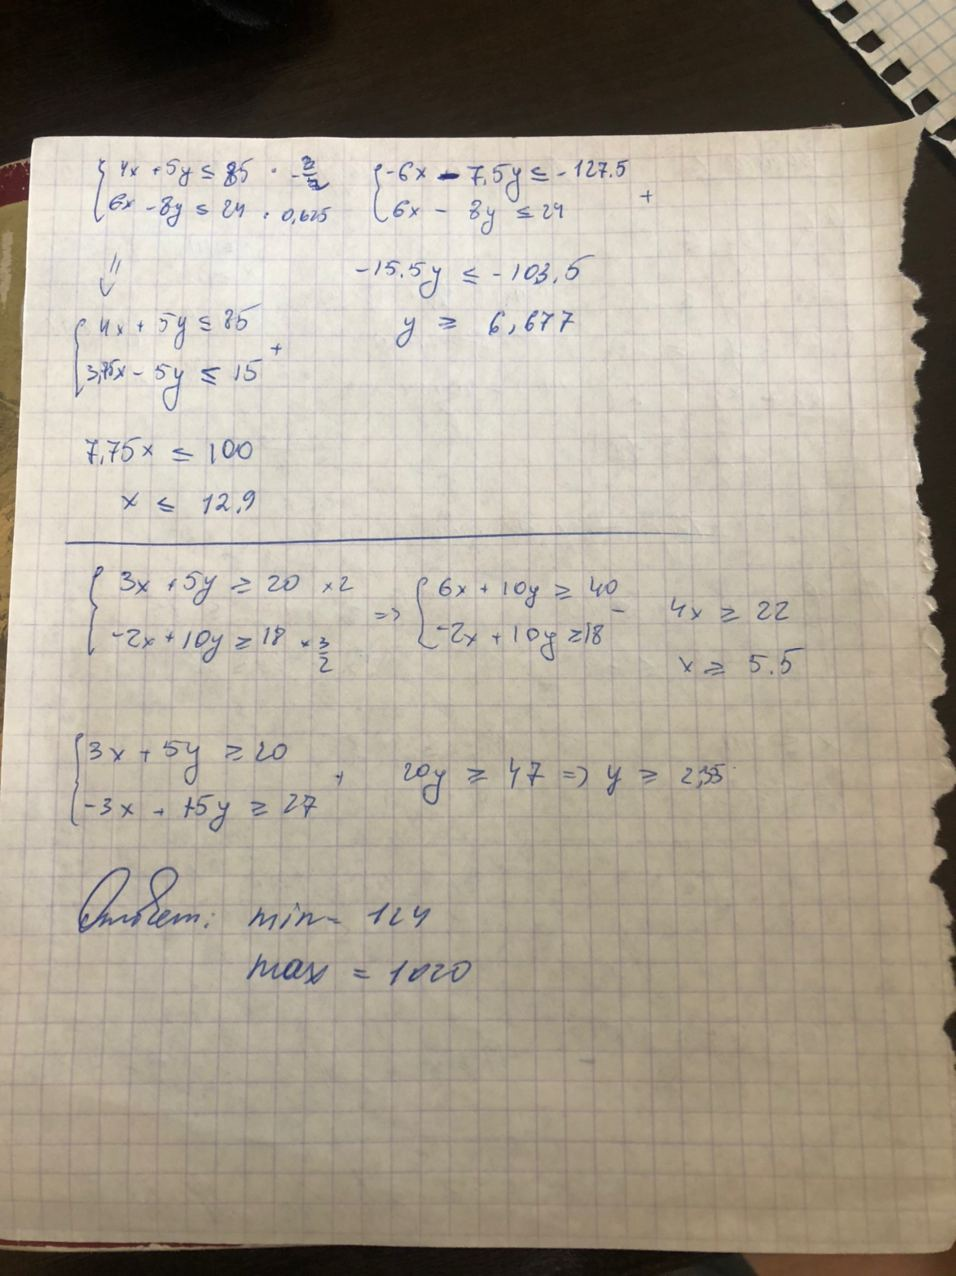 4x + 5y ≤ 85 · -3/2
6x - 8y ≤ 24 · 0,625
-6x - 7,5y ≤ -127.5
6x - 8y ≤ 24
+
⇓
-15.5y ≤ -103,5
y ≥ 6,677
4x + 5y ≤ 85
3,75x - 5y ≤ 15
+
7,75x ≤ 100
x ≤ 12.9
3x + 5y ≥ 20 ×2
-2x + 10y ≥ 18 × 3/2
=>
6x + 10y ≥ 40
-2x + 10y ≥ 18
-
4x ≥ 22
x ≥ 5.5
3x + 5y ≥ 20
-3x + 15y ≥ 27
+
20y ≥ 47 => y ≥ 2,35
Ответ: min = 124
max = 1020